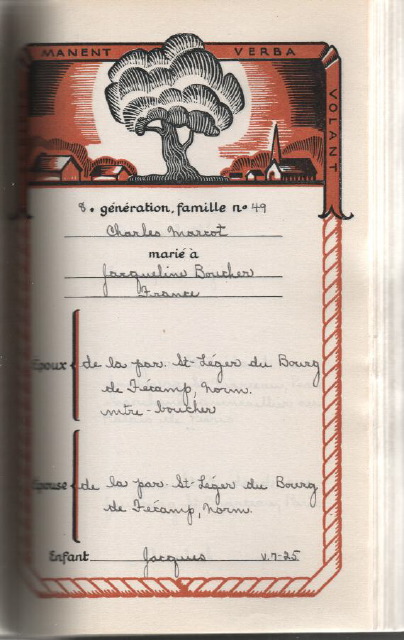 MANENT VERBA VOLANT
8e génération, famille no 49
Charles Marrot
marié à
Jacqueline Boucher
France
Epoux de la par. St-Léger du Bourg
de Fécamp, Norm.
mtre-boucher
Epouse de la par. St-Léger du Bourg
de Fécamp, Norm.
Enfant Jacques v.7-25